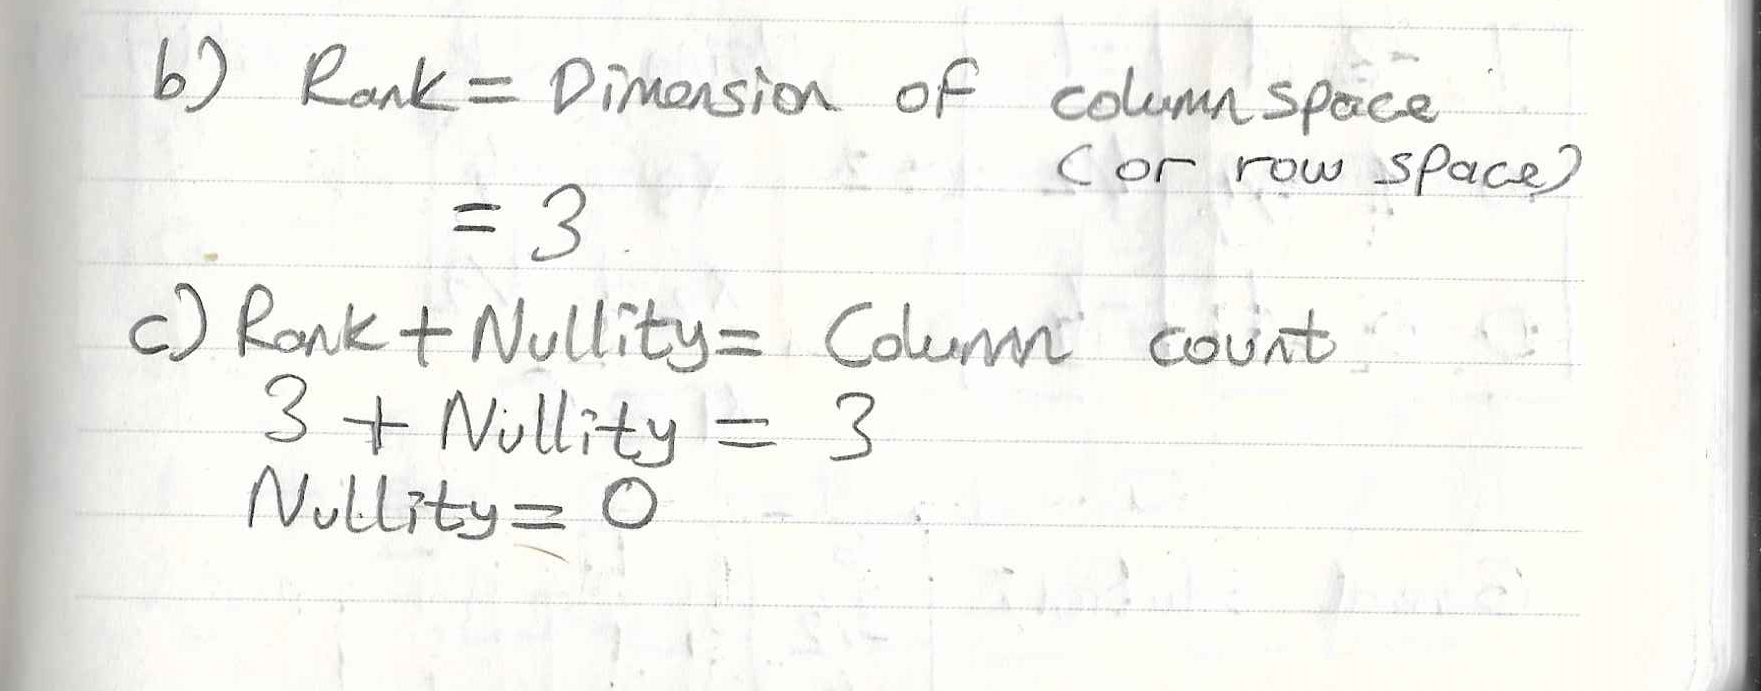 b) Rank = Dimension of column space
(or row space)
= 3
c) Rank + Nullity = Column count
3 + Nullity = 3
Nullity = 0